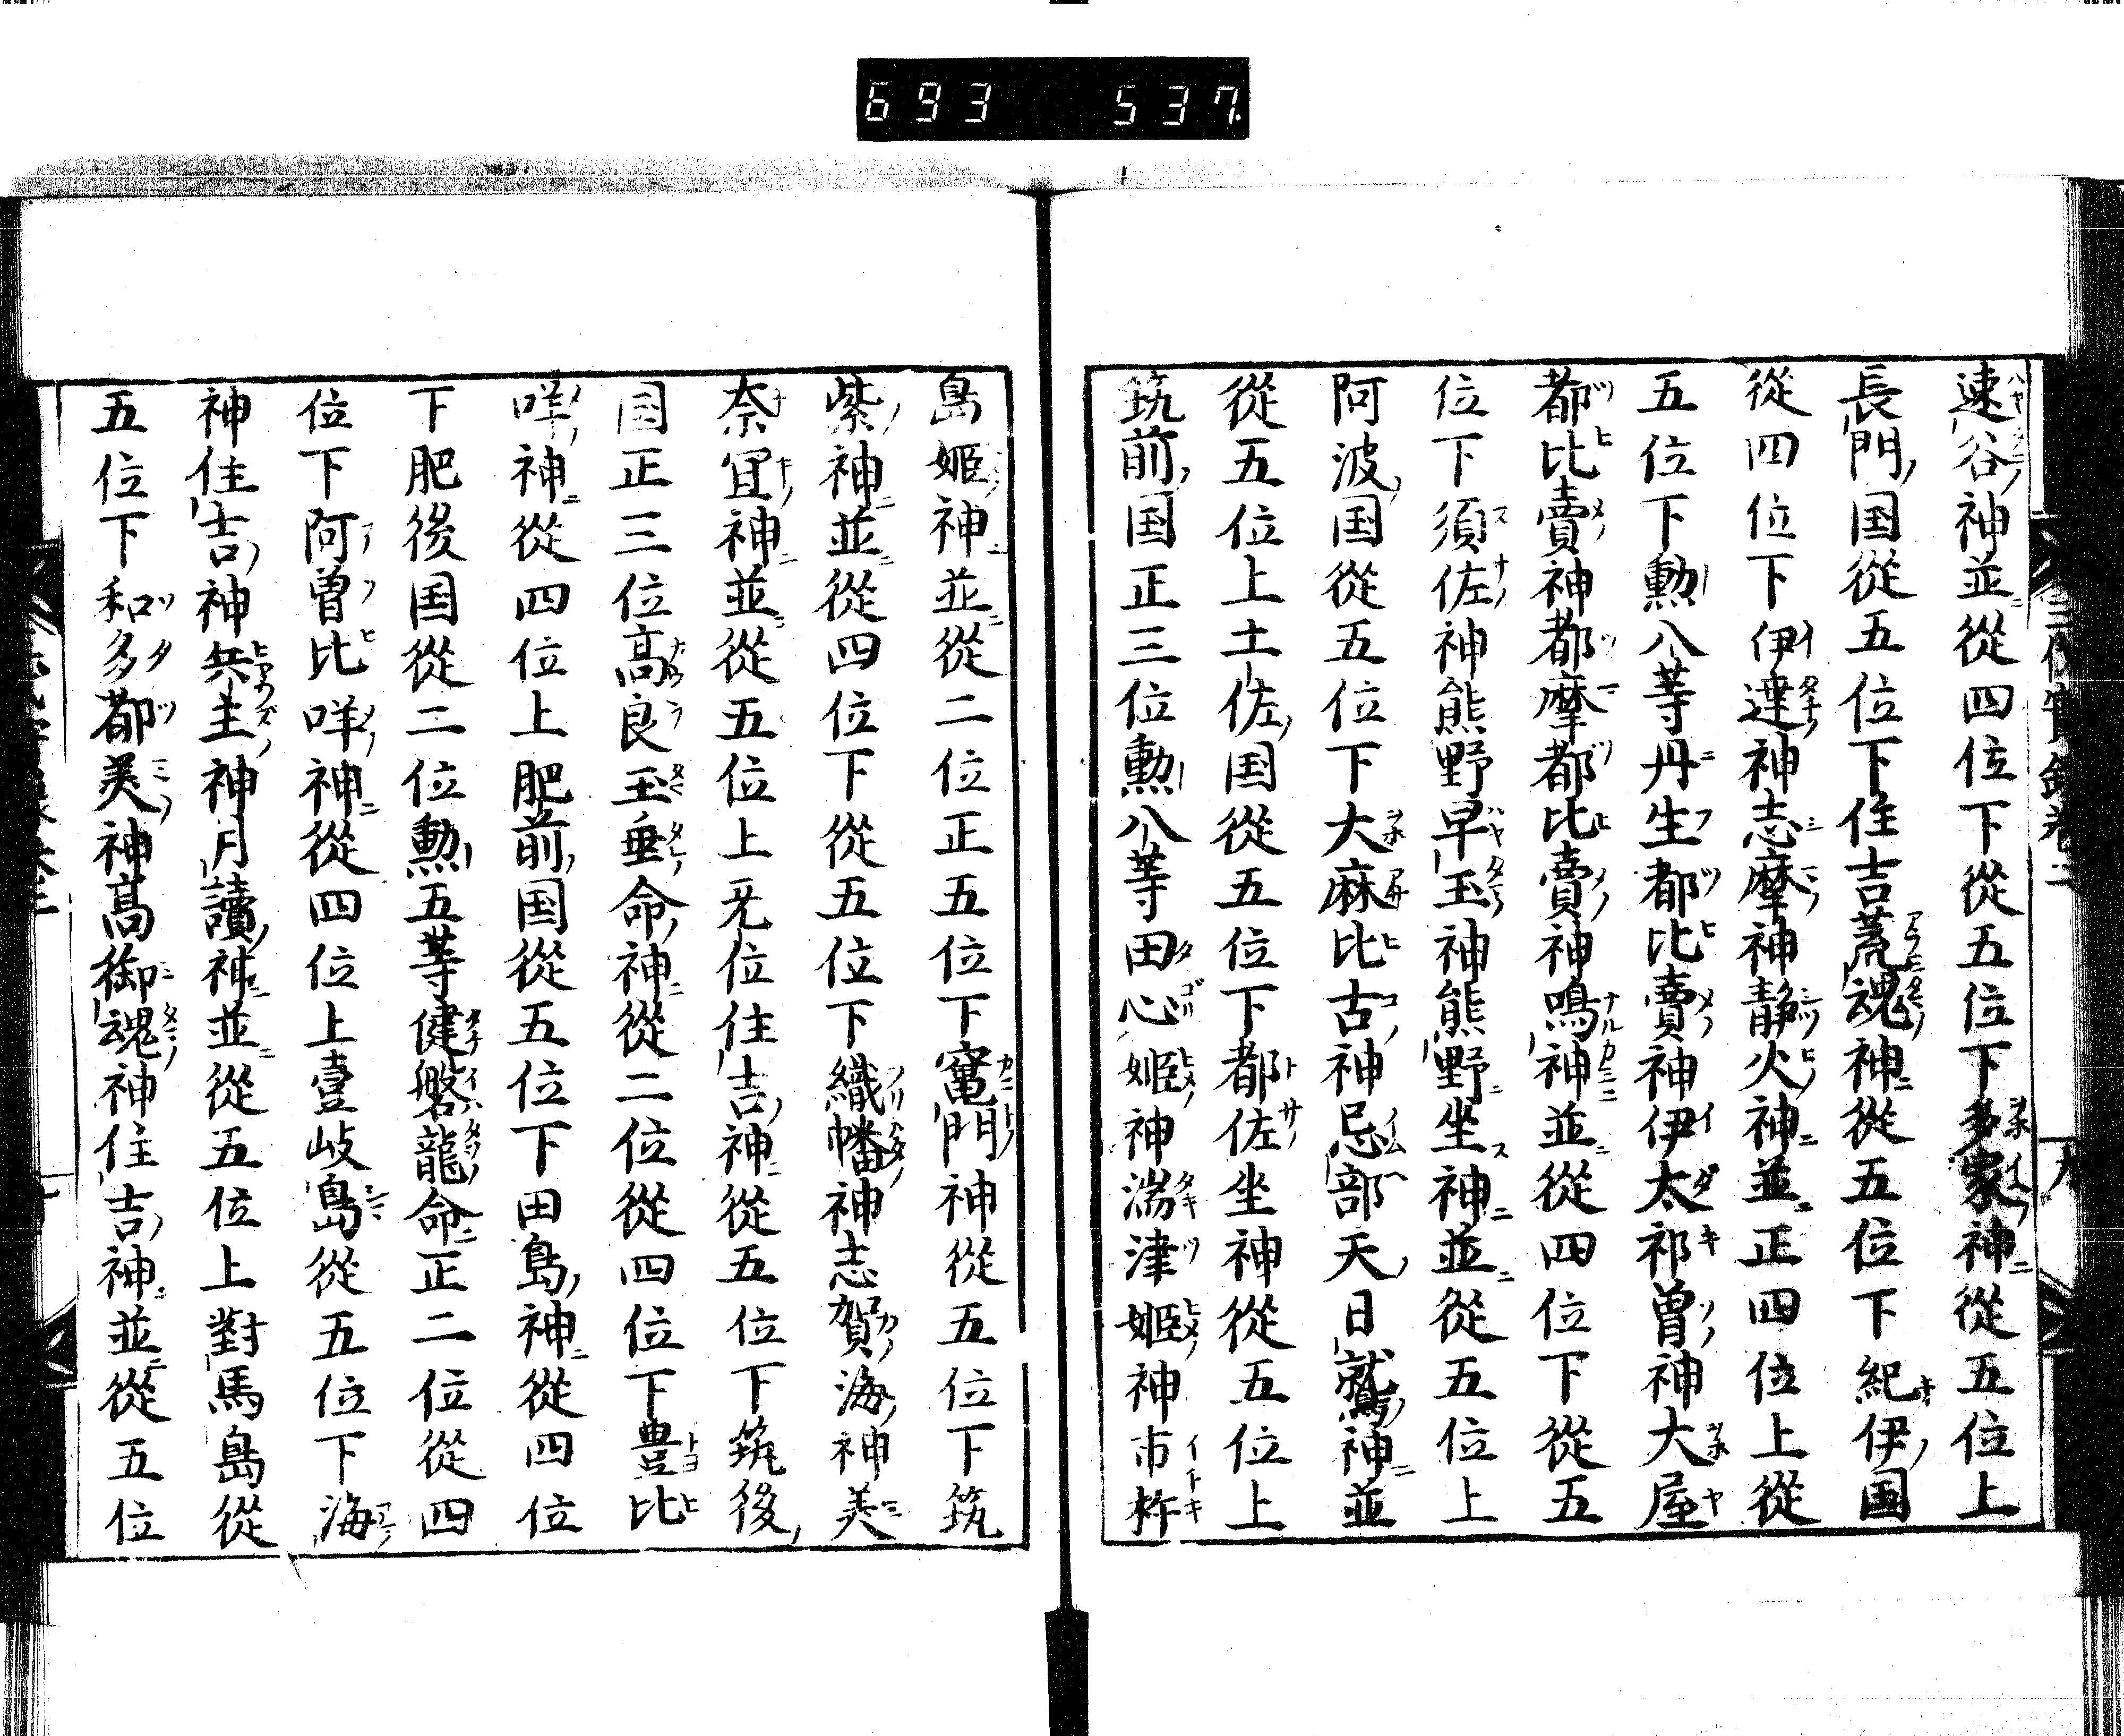 693 537
速谷神並從四位下從五位下多家神從五位上
長門国從五位下住吉荒魂神從五位下紀伊国
從四位下伊達神志摩神静火神並正四位上從
五位下勲八等丹生都比賣神伊太祁曽神大屋
都比賣神都摩都比賣神鳴神並從四位下從五
位下須佐神熊野早玉神熊野坐神並從五位上
阿波国從五位下大麻比古神忌部天日鷲神並
從五位上土佐国從五位下都佐坐神從五位上
筑前国正三位勲八等田心姫神湍津姫神市杵
島姫神並從二位正五位下竃門神從五位下筑
紫神並從四位下從五位下織幡神志賀海神美
奈宜神並從五位上无位住吉神從五位下筑後
国正三位高良玉垂命神從二位從四位下豊比
咩神從四位上肥前国從五位下田島神從四位
下肥後国從二位勲五等健磐龍命正二位從四
位下阿曽比咩神從四位上壹岐島從五位下海
神住吉神兵主神月讀神並從五位上對馬島從
五位下和多都美神高御魂神住吉神並從五位